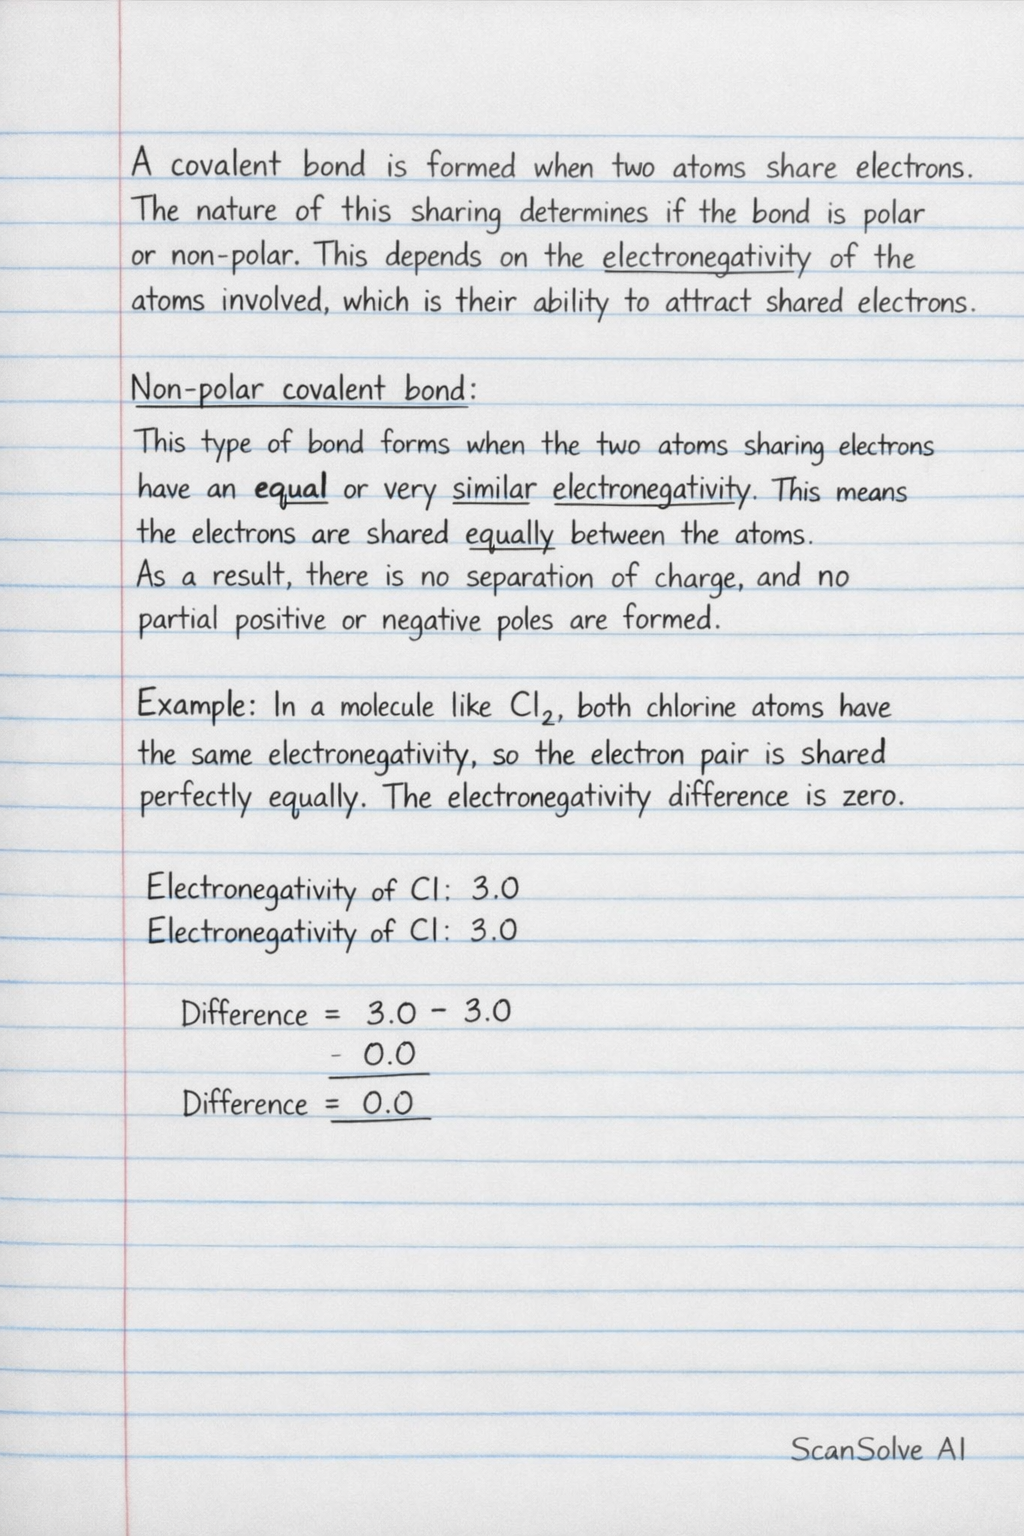 A covalent bond is formed when two atoms share electrons.
The nature of this sharing determines if the bond is polar
or non-polar. This depends on the electronegativity of the
atoms involved, which is their ability to attract shared electrons.
Non-polar covalent bond:
This type of bond forms when the two atoms sharing electrons
have an equal or very similar electronegativity. This means
the electrons are shared equally between the atoms.
As a result, there is no separation of charge, and no
partial positive or negative poles are formed.
Example: In a molecule like Cl₂, both chlorine atoms have
the same electronegativity, so the electron pair is shared
perfectly equally. The electronegativity difference is zero.
Electronegativity of Cl: 3.0
Electronegativity of Cl: 3.0
Difference = 3.0 - 3.0
- 0.0
Difference = 0.0
ScanSolve AI